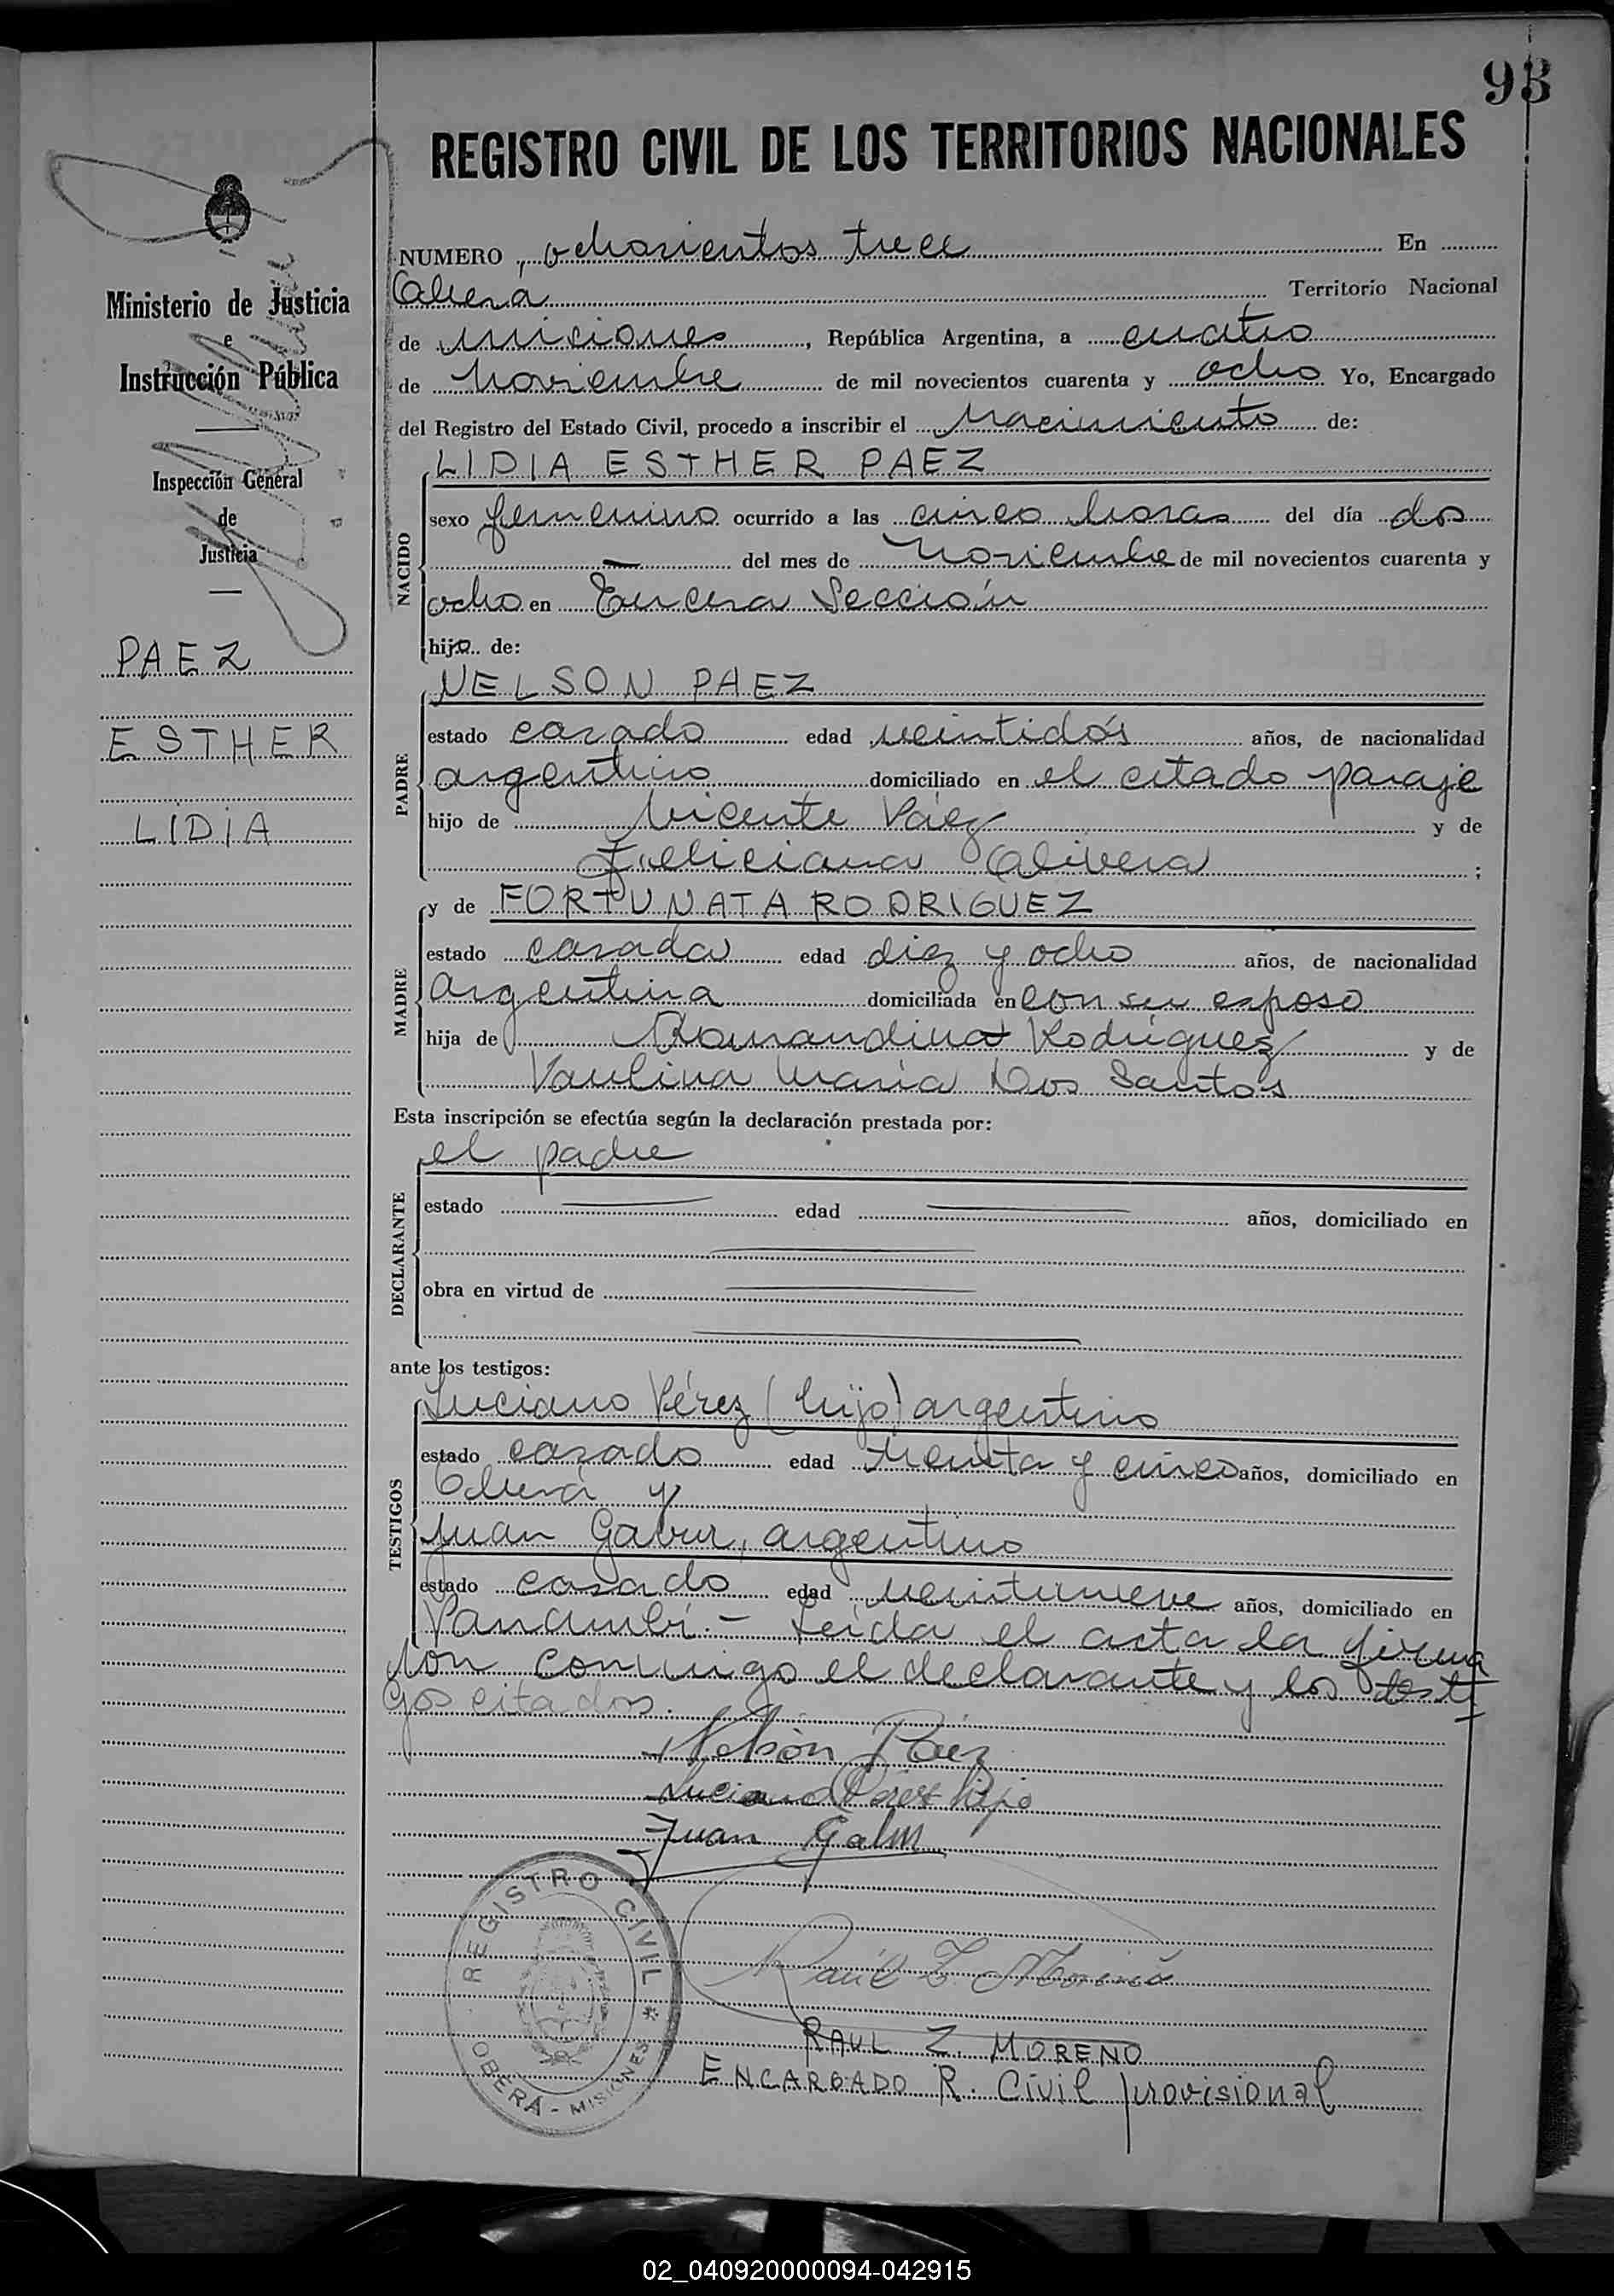 93
REGISTRO CIVIL DE LOS TERRITORIOS NACIONALES
Ministerio de Justicia
e
Instrucción Pública
Inspección General
de
Justicia
PAEZ
ESTHER
LIDIA
NUMERO, ochocientos trece En
Oberá Territorio Nacional
de Misiones, República Argentina, a cuatro
de Noviembre de mil novecientos cuarenta y ocho Yo, Encargado
del Registro del Estado Civil, procedo a inscribir el Nacimiento de:
NACIDO
LIDIA ESTHER PAEZ
sexo femenino ocurrido a las cinco horas del día dos
del mes de Noviembre de mil novecientos cuarenta y
ocho en Tercera Sección
hija de:
PADRE
NELSON PAEZ
estado casado edad veintidós años, de nacionalidad
argentino domiciliado en el citado paraje
hijo de Vicente Páez y de
Feliciana Olivera ;
MADRE
y de FORTUNATA RODRIGUEZ
estado casada edad diez y ocho años, de nacionalidad
argentina domiciliada en con su esposo
hija de Rodríguez y de
Paulina María Dos Santos
Esta inscripción se efectúa según la declaración prestada por:
DECLARANTE
el padre
estado edad años, domiciliado en
obra en virtud de
ante los testigos:
TESTIGOS
Luciano Pérez (hijo) argentino
estado casado edad treinta y cinco años, domiciliado en
Oberá y
Juan, argentino
estado casado edad veintinueve años, domiciliado en
Panambí.- Leída el acta la firma
ron conmigo el declarante y los testi
gos citados.
Nelson Páez
Luciano Pérez hijo
Juan
REGISTRO CIVIL * OBERÁ - MISIONES
RAUL Z. MORENO
ENCARGADO R. Civil provisional
02_040920000094-042915